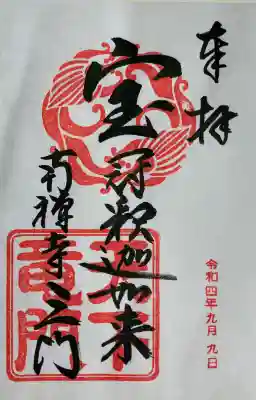 奉拝
令和四年九月九日
宝冠釈迦如来
南禅寺三門